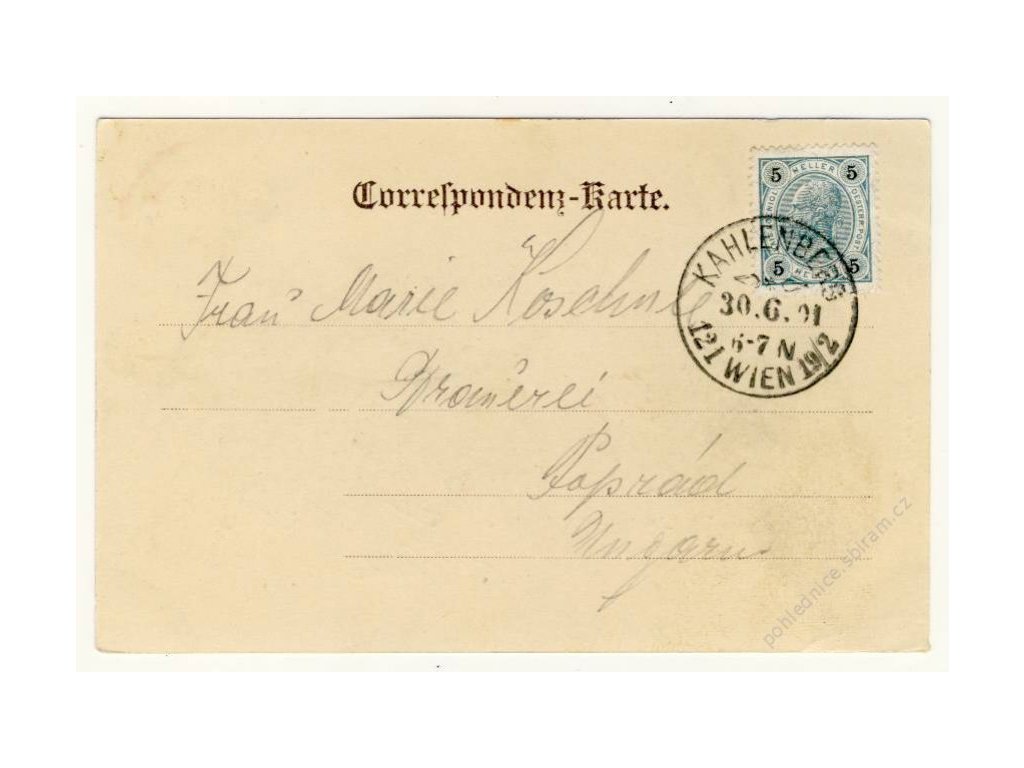 Correspondenz-Karte.
5 HELLER 5
5 5
KAHLENBERG
30.6.01
6-7 N
121 WIEN 19/2
Frau Marie
Brauerei
Poprád
Ungarn
pohlednice.sbiram.cz